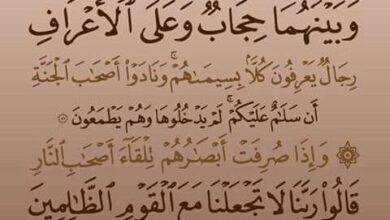 وَبَيْنَهُمَا حِجَابٌ وَعَلَى ٱلْأَعْرَافِ
رِجَالٌ يَعْرِفُونَ كُلًّۢا بِسِيمَىٰهُمْ ۚ وَنَادَوْا۟ أَصْحَٰبَ ٱلْجَنَّةِ
أَن سَلَٰمٌ عَلَيْكُمْ ۚ لَمْ يَدْخُلُوهَا وَهُمْ يَطْمَعُونَ
۞ وَإِذَا صُرِفَتْ أَبْصَٰرُهُمْ تِلْقَآءَ أَصْحَٰبِ ٱلنَّارِ
قَالُوا۟ رَبَّنَا لَا تَجْعَلْنَا مَعَ ٱلْقَوْمِ ٱلظَّٰلِمِينَ